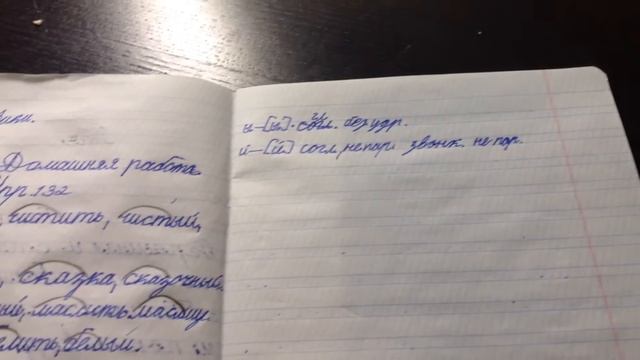 Домашняя работа
Упр 132
чистить, чистый,
сказка, сказочные
маслить маслиц
белый.
ы - [ы] - гл. безудр.
й - [й'] согл, непарн звонк. непар.